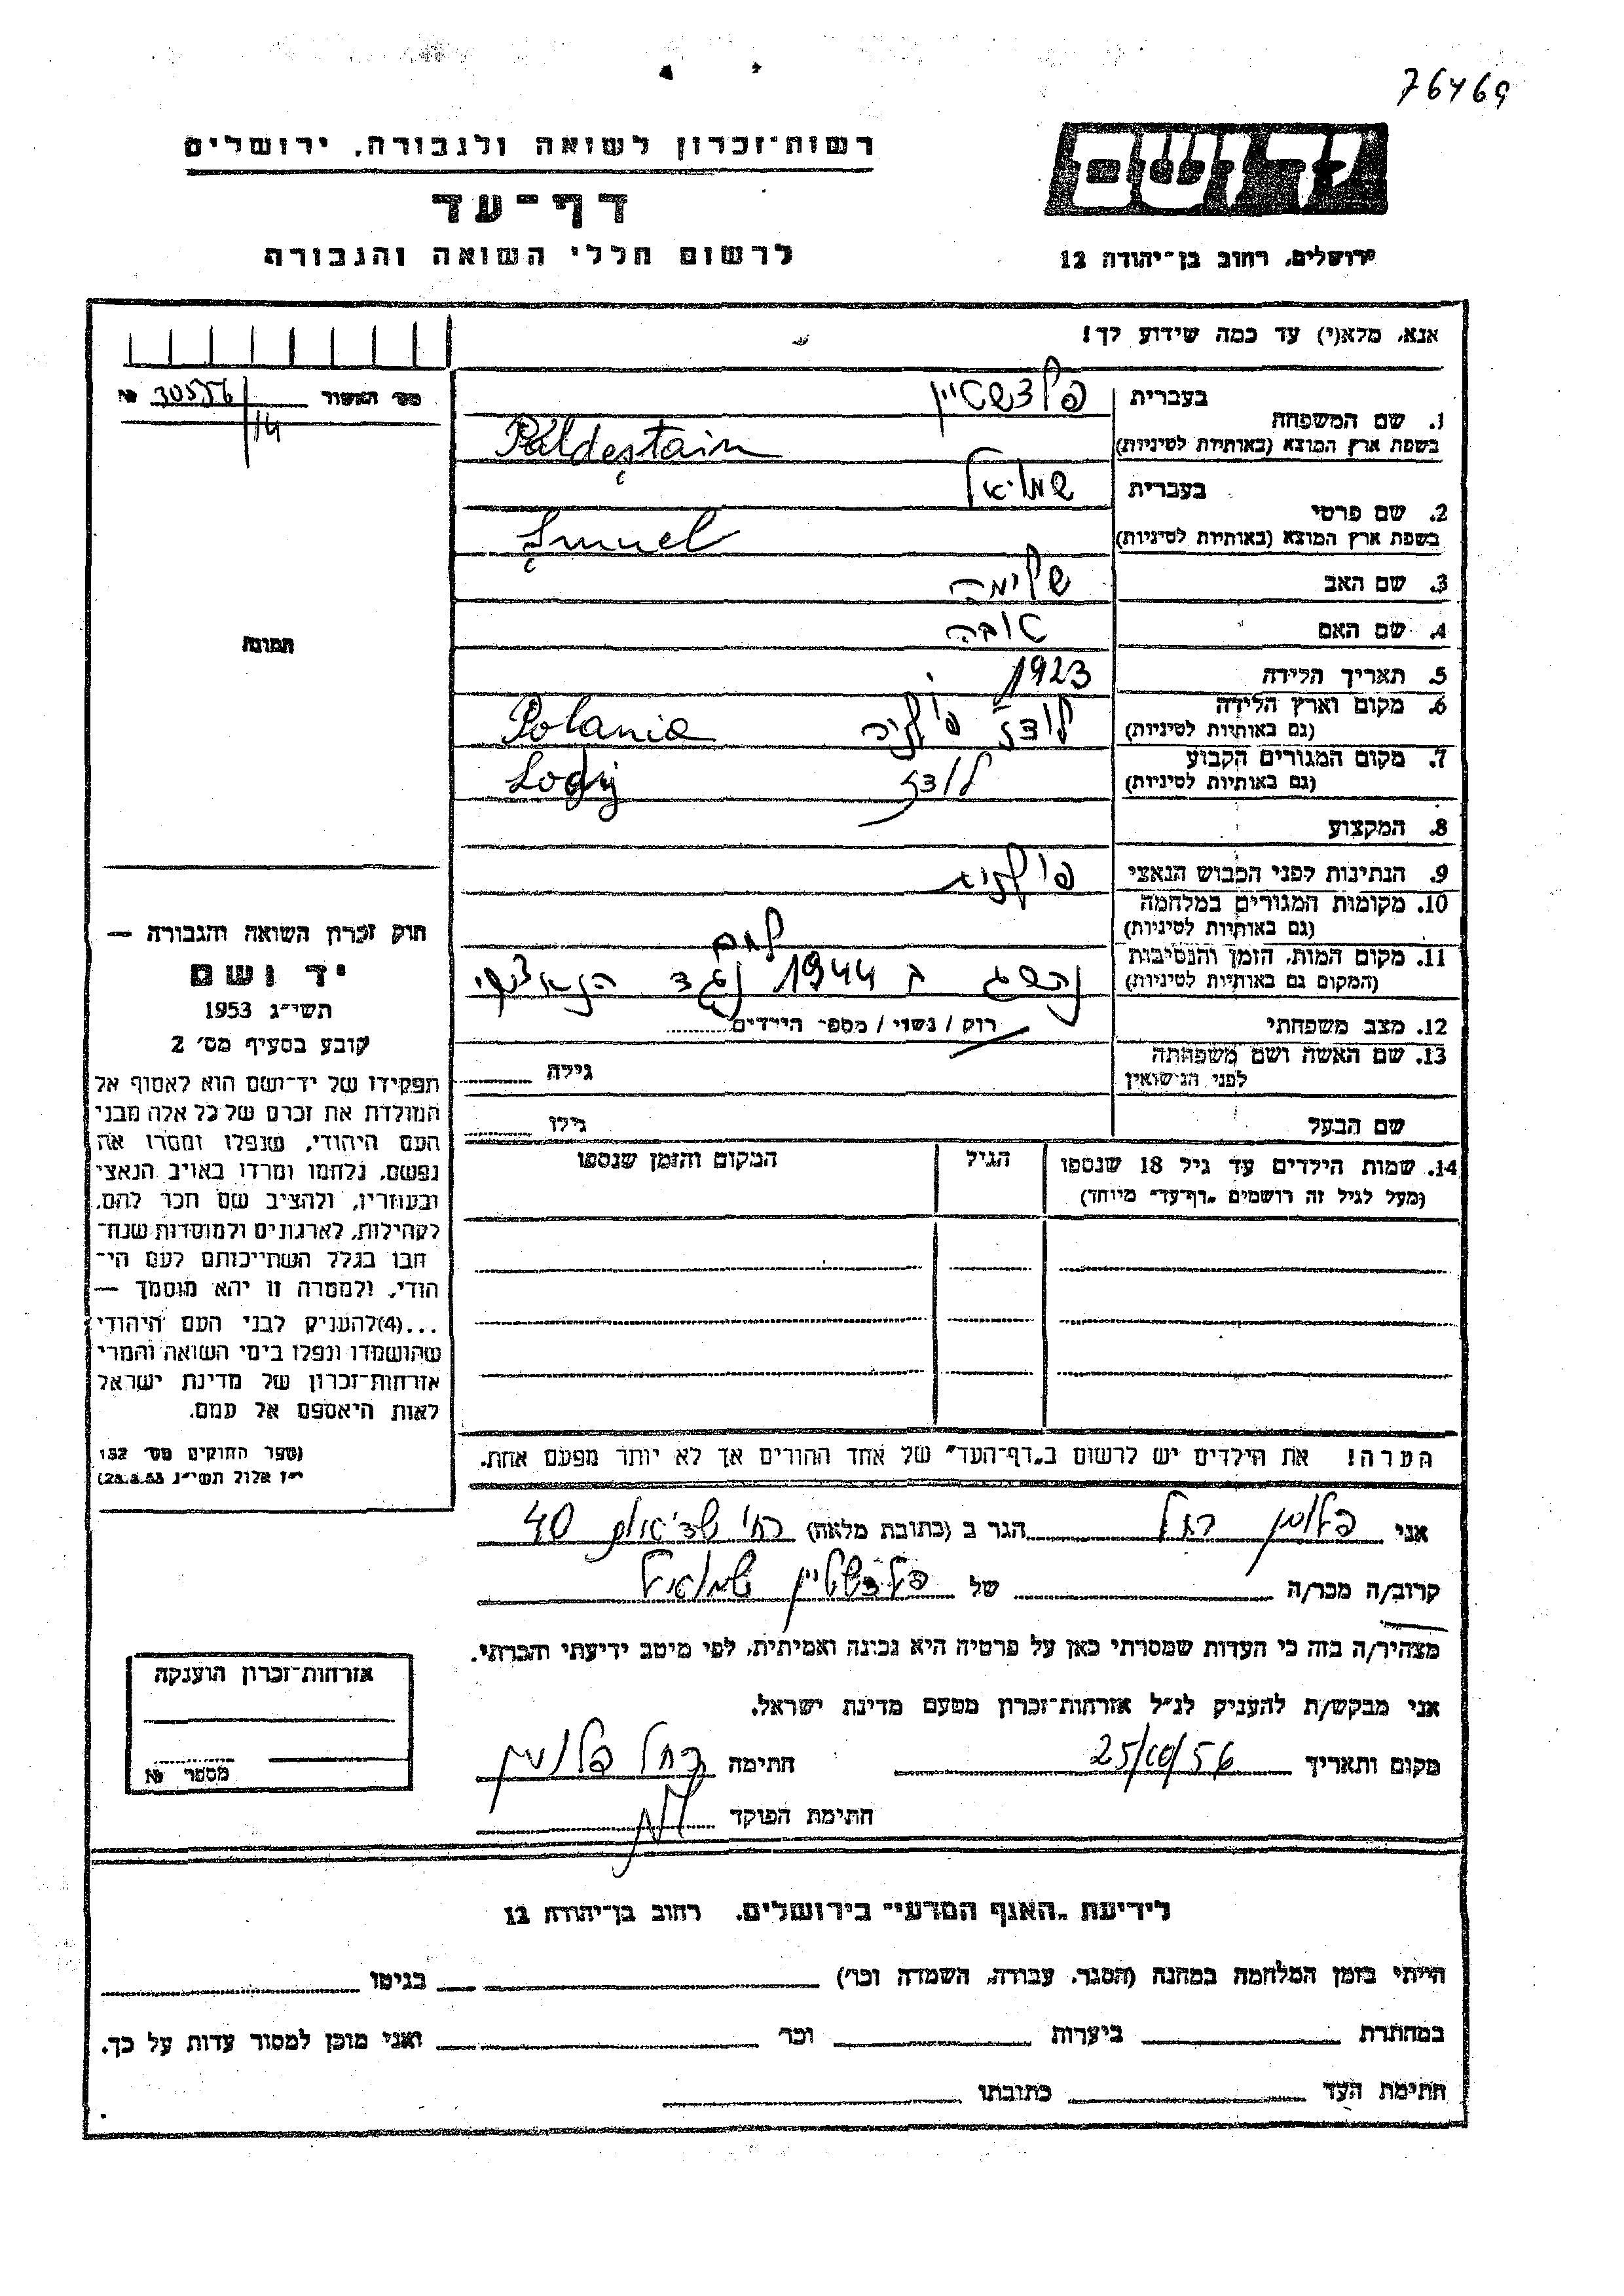 76469
רשות-זכרון לשואה ולגבורה, ירושלים
דף-עד
לרשום חללי השואה והגבורה
יד ושם
ירושלים, רחוב בן-יהודה 12
אנא, מלא(י) עד כמה שידוע לך!
מס' האשור 30556 №
14
תמונה
1. שם המשפחה
בעברית פלדשטיין
בשפת ארץ המוצא (באותיות לטיניות) Paldeștain
2. שם פרטי
בעברית שמואל
בשפת ארץ המוצא (באותיות לטיניות) Șmuel
3. שם האב שלימה
4. שם האם טובה
5. תאריך הלידה 1923
6. מקום וארץ הלידה לודז פולניה Polania
(גם באותיות לטיניות)
7. מקום המגורים הקבוע לודז Lodz
(גם באותיות לטיניות)
8. המקצוע
9. הנתינות לפני הכבוש הנאצי פולנית
10. מקומות המגורים במלחמה
(גם באותיות לטיניות)
11. מקום המות, הזמן והנסיבות ב 1944 נגד
(המקום גם באותיות לטיניות)
12. מצב משפחתי רוק / נשוי / מספר הילדים
13. שם האשה ושם משפחתה
לפני הנישואין
גילה
שם הבעל
גילו
14. שמות הילדים עד גיל 18 שנספו
(מעל לגיל זה רושמים "דף-עד" מיוחד)
הגיל
המקום והזמן שנספו
הערה! את הילדים יש לרשום ב"דף-העד" של אחד ההורים אך לא יותר מפעם אחת.
חוק זכרון השואה והגבורה —
יד ושם
תשי"ג 1953
קובע בסעיף מס' 2
תפקידו של יד-ושם הוא לאסוף אל
המולדת את זכרם של כל אלה מבני
העם היהודי, שנפלו ומסרו את
נפשם, נלחמו ומרדו באויב הנאצי
ובעוזריו, ולהציב שם וזכר להם,
לקהילות, לארגונים ולמוסדות שנח-
רבו בגלל השתייכותם לעם הי-
הודי, ולמטרה זו יהא מוסמך —
...(4)להעניק לבני העם היהודי
שהושמדו ונפלו בימי השואה והמרי
אזרחות-זכרון של מדינת ישראל
לאות היאספם אל עמם.
(ספר החוקים מס' 132
י"ז אלול תשי"ג 28.8.53)
אני רחל הגר ב (כתובת מלאה) רח' 40
קרוב/ה מכר/ה של פלדשטיין שמואל
מצהיר/ה בזה כי העדות שמסרתי כאן על פרטיה היא נכונה ואמיתית, לפי מיטב ידיעתי והכרתי.
אני מבקש/ת להעניק לנ"ל אזרחות-זכרון מטעם מדינת ישראל.
מקום ותאריך 25/10/56 חתימה רחל
חתימת הפוקד
אזרחות-זכרון הוענקה
מספר №
לידיעת "האגף המדעי" בירושלים, רחוב בן-יהודה 12
הייתי בזמן המלחמה במחנה (הסגר, עבודה, השמדה וכו') בגיטו
במחתרת ביערות וכו' ואני מוכן למסור עדות על כך.
חתימת העד כתובתו